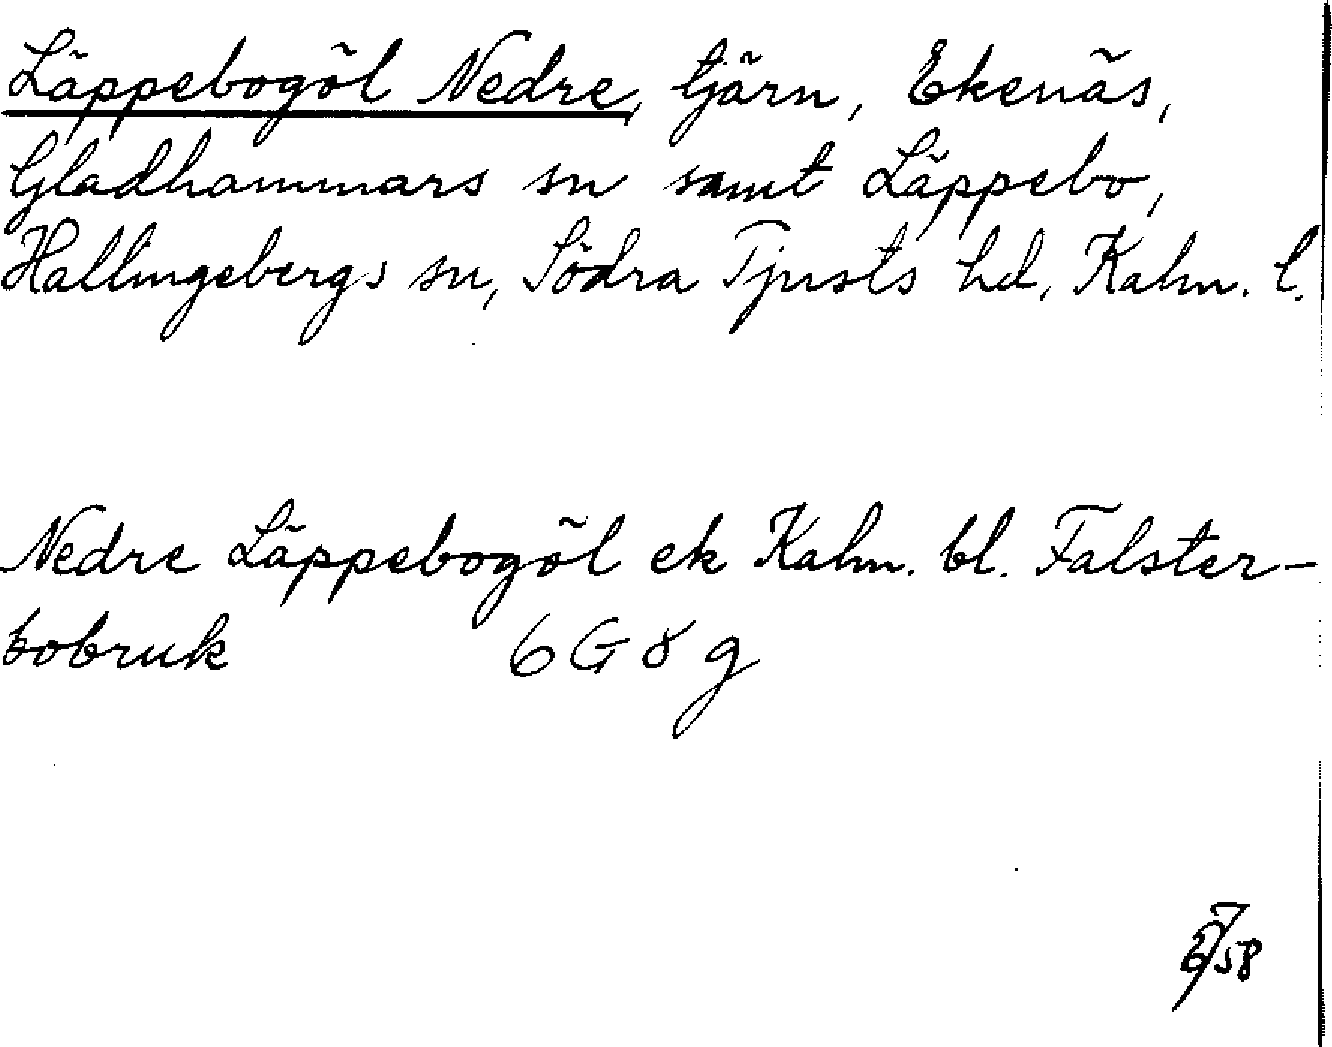 Läppebogöl Nedre, tjärn, Ekenäs,
Gladhammars sn samt Läppebo,
Hallingebergs sn, Södra Tjusts hd, Kalm. l.
Nedre Läppebogöl ek Kalm. bl. Falster-
bobruk 6 G 8 g